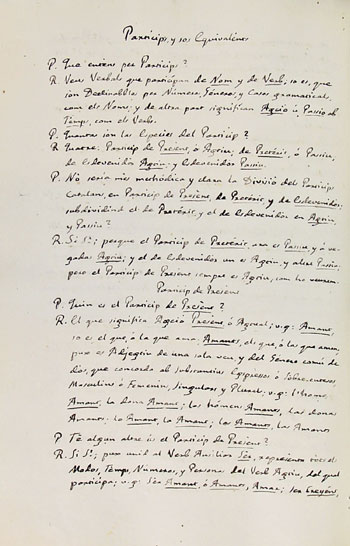 Participis, y sos Equivalents
P. Que entens per Participi?
R. Veus Verbals que participan de Nom, y de Verb, so es, que
son Declinables per Números, Géneros, y Casos gramaticals,
com els Noms; y de altra part significan Acció ó Passió ab
Temps, com els Verbs.
P. Quantas son las Especies del Participi?
R. Quatre: Participi de Present, ó Agent, de Preterit, ó Passiu,
de Esdevenidor Actiu, y Esdevenidor Passiu.
P. No seria mes methódica y clara la Divisió del Participi
Catalan, en Participi de Present, de Preterit, y de Esdevenidor;
subdividint el de Preterit, y el de Esdevenidor en Actiu
y Passiu?
R. Si Sr.; perque el Participi de Preterit, ara es Passiu, y á ve-
gadas Actiu; y el de Esdevenidor un es Actiu, y altre Passiu;
pero el Participi de Present sempre es Actiu, com ho veurem.
Participi de Present
P. Quin es el Participi de Present?
R. El que significa Acció Present ó Actual; v.g: Amant,
so es el que, ó la que ama; Amants, els que, ó las que aman;
pues es Adjectiu de una sola veu, y del Género comú de
dos, que concorda ab substantius Expressos ó Sobreentesos
Masculins ó Femenins, Singulars y Plurals: v.g: l'home
Amant, la dona Amant; los hómens Amants, las donas
Amants: lo Amant, la Amant; los Amants, las Amants
P. Té algun altre ús el Participi de Present?
R. Si Sr.; pues unit al Verb Auxiliar Ser, representa tots els
Modos, Temps, Números, y Personas del Verb Actiu, del qual
participa; v.g: Ser Amant, ó Amants, Amar; ser